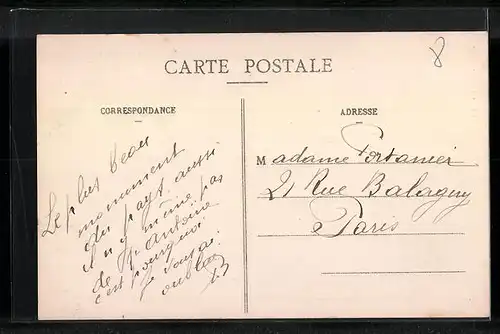 8
CARTE POSTALE
CORRESPONDANCE
ADRESSE
Le plus beau
monument
du pays. aussi
il n'y même pas
de St Antoine
c'est pourquoi
je
Madame Fortanier
21 Rue Balagny
Paris